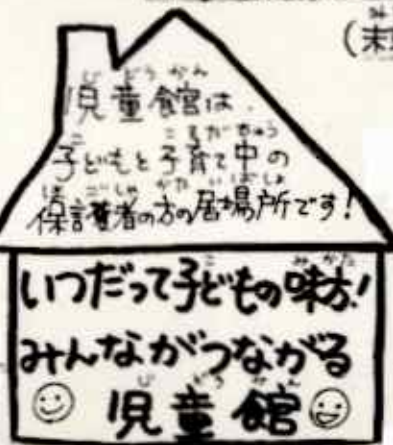 (末
児童館は、
子どもと子育て中の
保護者の方の居場所です!
いつだって子どもの味方!
みんながつながる
児童館